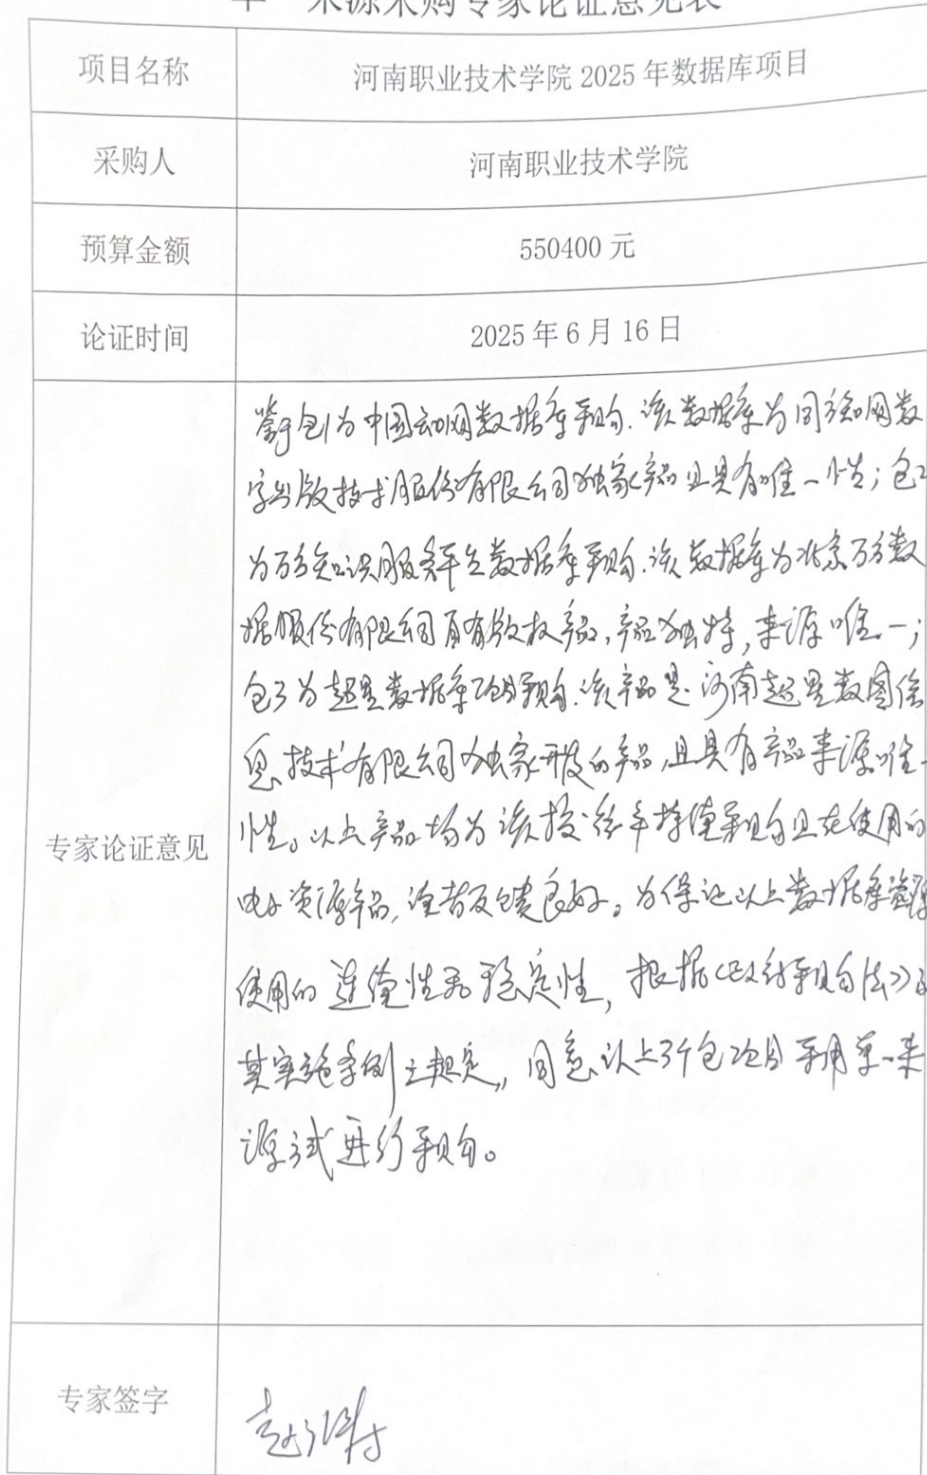 单一来源采购专家论证意见表
项目名称 河南职业技术学院 2025 年数据库项目
采购人 河南职业技术学院
预算金额 550400 元
论证时间 2025 年 6 月 16 日
专家论证意见
包1为中国知网数据库采购.该数据库为同方知网数
字出版技术股份有限公司独家产品且具有唯一性;包2
为万方知识服务平台数据库采购.该数据库为北京万方数
据股份有限公司自有版权产品,产品独特,来源唯一;
包3为超星数据库项目采购.该产品是河南超星数图信
息技术有限公司独家开发的产品,且具有产品来源唯一
性。以上产品均为该校往年持续采购且在使用的
电子资源产品,读者反馈良好。为保证以上数据库资源
使用的连续性和稳定性,根据《政府采购法》及
其实施条例之规定,同意以上3个包项目采用单一来
源方式进行采购。
专家签字